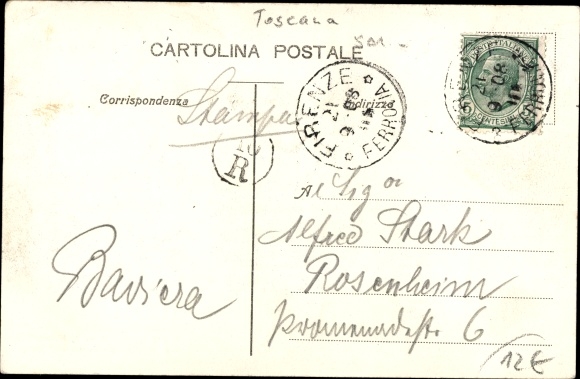 Toscana
CARTOLINA POSTALE
Corrispondenza
Indirizzo
Stampa
FIRENZE
FERROVIA
21
9
08
R
POSTE ITALIANE
CENTESIMI
Al Sigor
Alfred Stark
Rosenheim
Promenadestr. 6
Baviera
12€